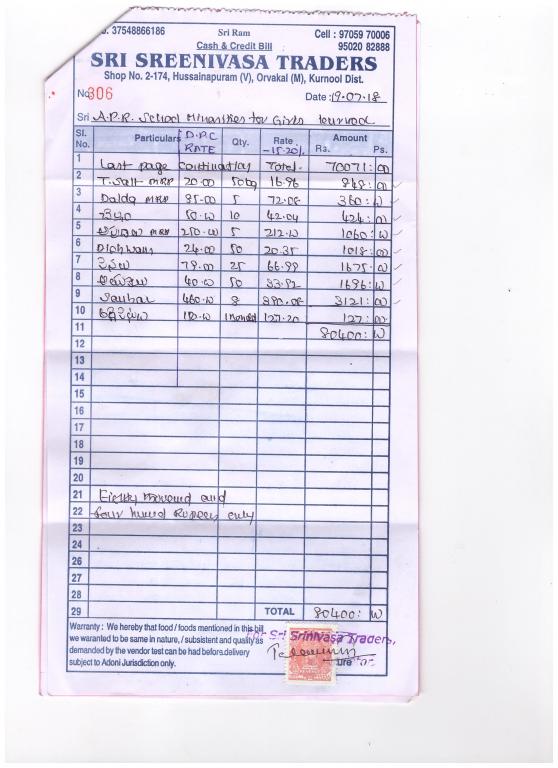 . 37548866186 Sri Ram Cell : 97059 70006
Cash & Credit Bill 95020 82888
SRI SREENIVASA TRADERS
Shop No. 2-174, Hussainapuram (V), Orvakal (M), Kurnool Dist.
No 306 Date : 19-07-18
Sri A.P.R. School Minorities for Girls kurnool
Sl. No. Particulars D.P.C RATE Qty. Rate -15.20% Amount Rs. Ps.
1 Last page Continuation Total. 70071: 00
2 T. Salt MRP 20.00 50 16.96 848: 00
3 Dalda MRP 85.00 5 72.08 360: 00
4 50.00 10 42.04 424: 00
5 250.00 5 212.00 1060: 00
6 24.00 50 20.35 1018: 00
7 79.00 25 66.99 1675: 00
8 40.00 50 33.92 1696: 00
9 460.00 8 390.08 3121: 00
10 150.00 127.20 127: 00
11 80400: 00
12
13
14
15
16
17
18
19
20
21 Eighty thousand and
22 four hundred Rupees only
23
24
25
26
27
28
29 TOTAL 80400: 00
Warranty : We hereby that food / foods mentioned in this bill
we waranted to be same in nature, / subsistent and quality as
demanded by the vendor test can be had before delivery
subject to Adoni Jurisdiction only.
For Sri Srinivasa Traders,